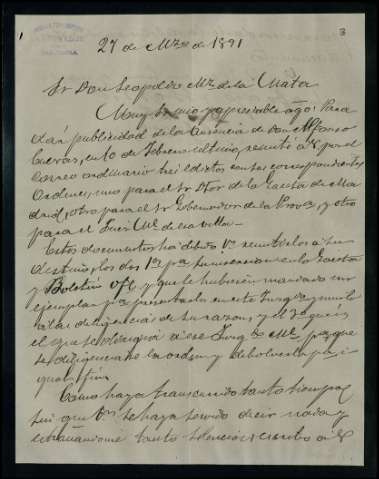 3
27 de Mzo de 1891
Sr Don Leopoldo Mz de la Mata
Muy Sr mio y apreciable amgo: Para
dar publicidad de la ausencia de Don Alfonso
Cuevas, en 10 de Febrero ultimo, remiti a V. por el
correo ordinario tres edictos con sus correspondientes
ordenes, uno para el Sr Dtor de la Gaceta de Ma
drid, otro para el Sr Gobernador de la Prova, y otro
para el Juez
Estos documentos ha debido V. remitirlos a su
destino, los dos 1os pa su insercion en la Gaceta
y Boletin Ofl y que le hubieran mandado un
ejemplar pa presentarlo en este Juzgdo y unirlo
a las diligencias de su razon, y el 3o
el que se dirigia a ese Juzgdo Ml, pa que
se diligenciase la orden y devolverla pa
igual fin
Como haya transcurrido tanto tiempo
sin que V. se haya servido decir nada y
estrañandome tanto silencio, escribo a V.